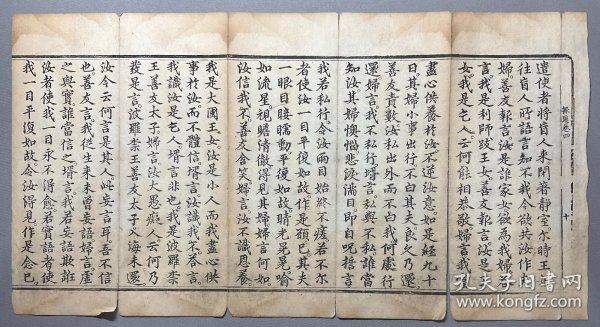 遣使者將盲人来閉着靜室尒時王女
往盲人所語言知不我今欲共汝作
婦善友報言汝是誰家女欲爲我婦
言我是利師跋王女善友報言汝是
女我是乞人云何能相恭敬婦言我當
報恩卷四
十
盡心供養於汝不逆汝意如是經九十
日其婦小事出行不白其夫良久乃還
善友責數汝私出外而不白我何處行
還婦言我不私行壻言私與不私誰當
知汝其婦懊惱悲淚滿目即自呪誓言
我若私行令汝兩目始終不瘥若不尒
者使汝一目平復如故作是願已其夫
一眼目瞤動平復如故睛光晃晃喻
如流星視瞻清徹得見其婦婦言何如
汝信我不善友含笑婦言汝不識恩養
我是大國王女汝是小人而我盡心供
事於汝而不體信壻言汝識我不答言
我識汝是乞人壻言非也我是波羅柰
王善友太子婦言汝大愚癡人云何乃
發是言波羅柰王善友太子入海未還
汝今云何言是其人此妄言耳吾不信
也善友言我從生来未曾妄語婦言虛
之與實誰當信之壻言我若妄語欺誑
汝者使我一目永不得愈若實語者使
我一目平復如故令汝得見作是念已
孔夫子旧书网
www.kongfz.com